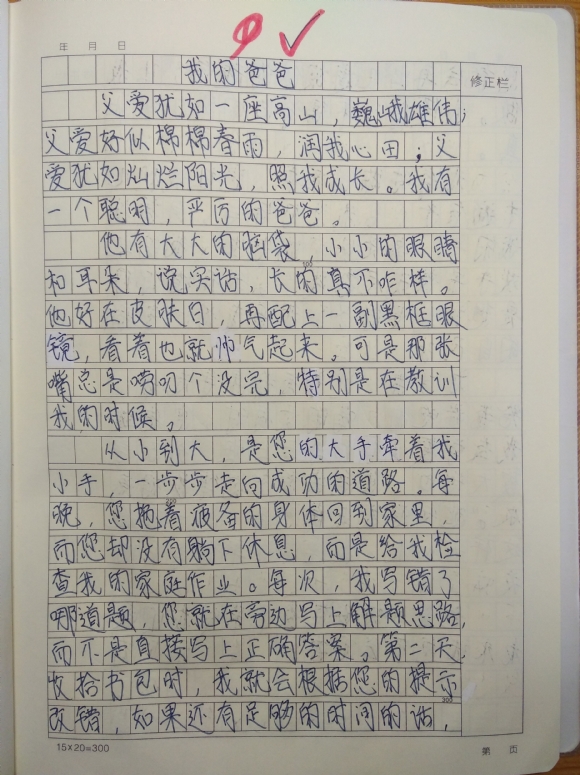 年 月 日
我的爸爸
修正栏
父爱犹如一座高山，巍峨雄伟；
父爱好似棉棉春雨，润我心田；父
爱犹如灿烂阳光，照我成长。我有
一个聪明，严厉的爸爸。
他有大大的脑袋 小小的眼睛
和耳朵，说实话，长的真不咋样。
100
他好在皮肤白，再配上一副黑框眼
镜，看着也就帅气起来。可是那张
嘴总是唠叨个没完，特别是在教训
我的时候。
从小到大，是您的大手牵着我
小手，一步步走向成功的道路。每
200
晚，您拖着疲备的身体回到家里，
而您却没有躺下休息，而是给我检
查我的家庭作业。每次，我写错了
哪道题，您就在旁边写上解题思路，
而不是直接写上正确答案。第二天，
收拾书包时，我就会根据您的提示
300
改错，如果还有足够的时间的话，
15×20=300
第 页